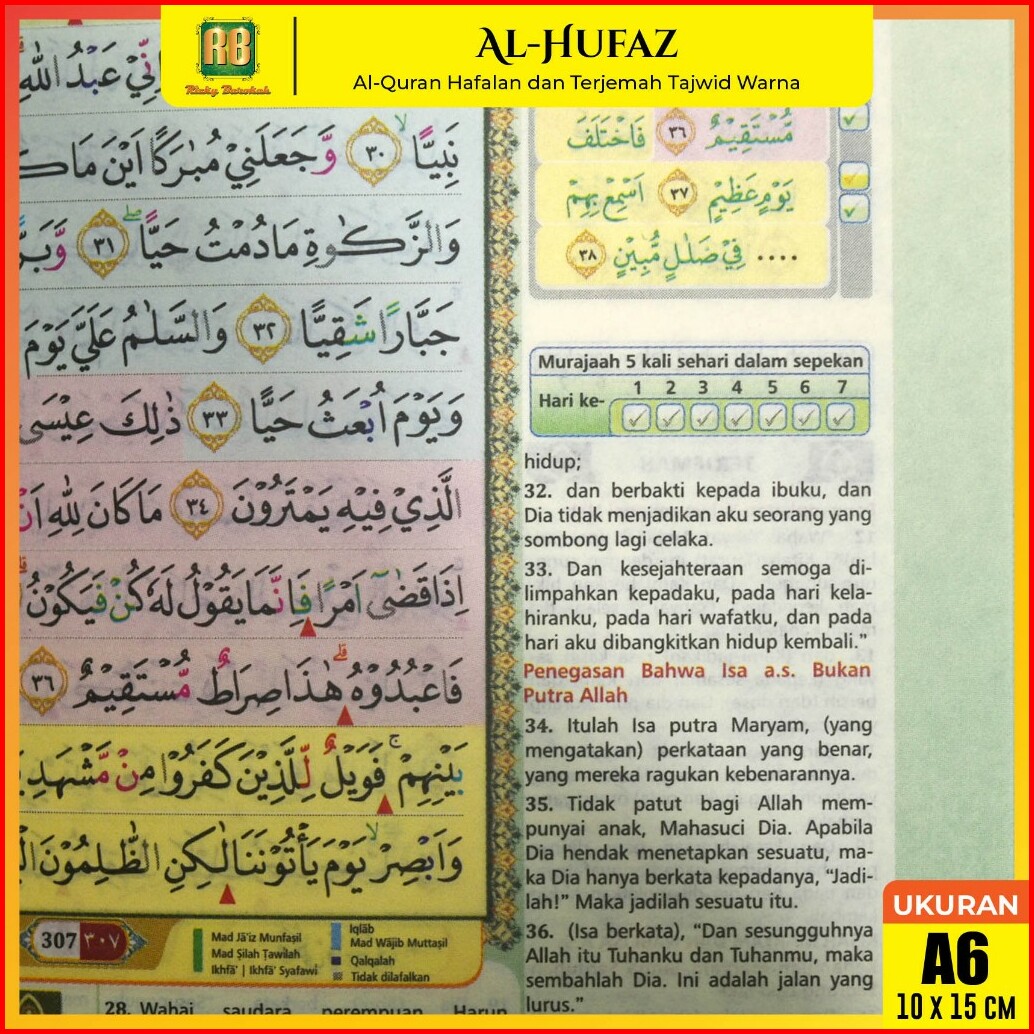 RB
Rizky Barokah
AL-HUFAZ
Al-Quran Hafalan dan Terjemah Tajwid Warna
عَبْدُ اللّٰهِ
نَبِيًّا ۙ ٣٠ وَّجَعَلَنِيْ مُبٰرَكًا اَيْنَ مَا
وَالزَّكٰوةِ مَا دُمْتُ حَيًّا ۖ ٣١
جَبَّارًا شَقِيًّا ٣٢ وَالسَّلٰمُ عَلَيَّ يَوْمَ
وَيَوْمَ اُبْعَثُ حَيًّا ٣٣ ذٰلِكَ عِيْسَى
الَّذِيْ فِيْهِ يَمْتَرُوْنَ ٣٤ مَا كَانَ لِلّٰهِ اَنْ
اِذَا قَضٰٓى اَمْرًا فَاِنَّمَا يَقُوْلُ لَهٗ كُنْ فَيَكُوْنُ
فَاعْبُدُوْهُ ۗ هٰذَا صِرَاطٌ مُّسْتَقِيْمٌ ٣٦
بَيْنِهِمْ ۚ فَوَيْلٌ لِّلَّذِيْنَ كَفَرُوْا مِنْ مَّشْهَدِ
وَاَبْصِرْ ۙ يَوْمَ يَأْتُوْنَنَا لٰكِنِ الظّٰلِمُوْنَ
307 ٣٠٧
Mad Jā'iz Munfaṣil
Mad Ṣilah Ṭawīlah
Ikhfā' | Ikhfā' Syafawi
Iqlāb
Mad Wājib Muttaṣil
Qalqalah
Tidak dilafalkan
28. Wahai saudara perempuan Harun
مُسْتَقِيْمٌ ٣٦ فَاخْتَلَفَ
يَوْمٍ عَظِيْمٍ ٣٧ اَسْمِعْ بِهِمْ
.... فِيْ ضَلٰلٍ مُّبِيْنٍ ٣٨
Murajaah 5 kali sehari dalam sepekan
Hari ke- 1 2 3 4 5 6 7
hidup;
32. dan berbakti kepada ibuku, dan
Dia tidak menjadikan aku seorang yang
sombong lagi celaka.
33. Dan kesejahteraan semoga di-
limpahkan kepadaku, pada hari kela-
hiranku, pada hari wafatku, dan pada
hari aku dibangkitkan hidup kembali.”
Penegasan Bahwa Isa a.s. Bukan
Putra Allah
34. Itulah Isa putra Maryam, (yang
mengatakan) perkataan yang benar,
yang mereka ragukan kebenarannya.
35. Tidak patut bagi Allah mem-
punyai anak, Mahasuci Dia. Apabila
Dia hendak menetapkan sesuatu, ma-
ka Dia hanya berkata kepadanya, “Jadi-
lah!” Maka jadilah sesuatu itu.
36. (Isa berkata), “Dan sesungguhnya
Allah itu Tuhanku dan Tuhanmu, maka
sembahlah Dia. Ini adalah jalan yang
lurus.”
UKURAN
A6
10 X 15 CM